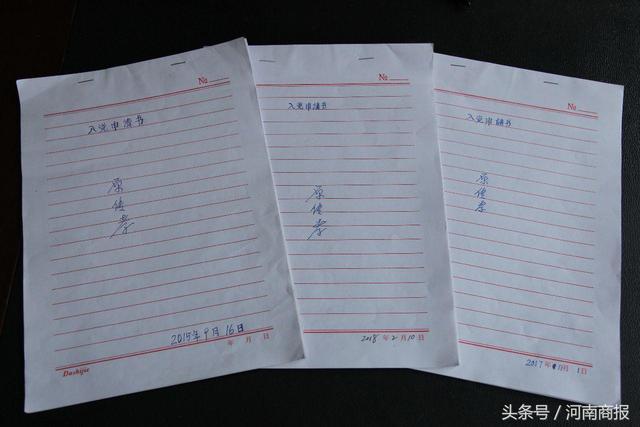 №
入党申请书
原
孝
2015年9月16日
年 月 日
Dashijie
№
入党申请书
原
孝
2018年2月10日
№
入党申请书
原
孝
2017年 月1日
头条号 / 河南商报